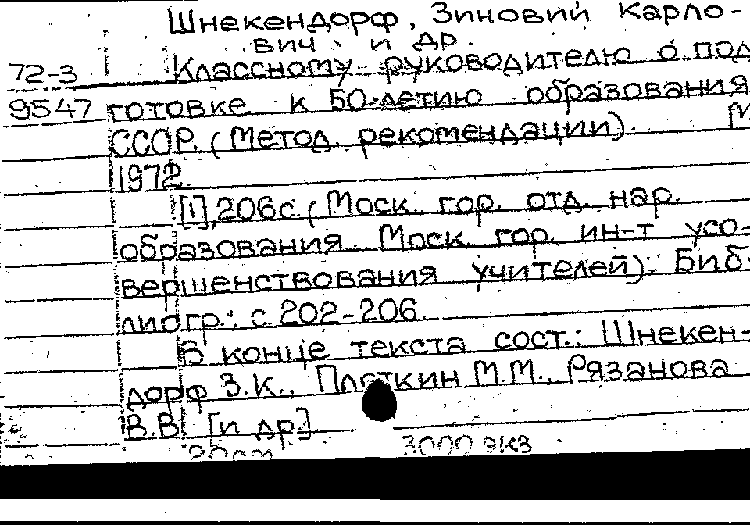 Шнекендорф, Зиновий Карло-
вич и др.
72-3 Классному руководителю о под
9547 готовке к 50-летию образования
СССР. (Метод. рекомендации). М
1972.
[1], 206с. (Моск. гор. отд. нар.
образования. Моск. гор. ин-т усо-
вершенствования учителей). Биб-
лиогр.: с. 202-206.
В конце текста сост.: Шнекен-
дорф З.К., Плоткин М.М., Рязанова
В.В. [и др.]
3000 экз